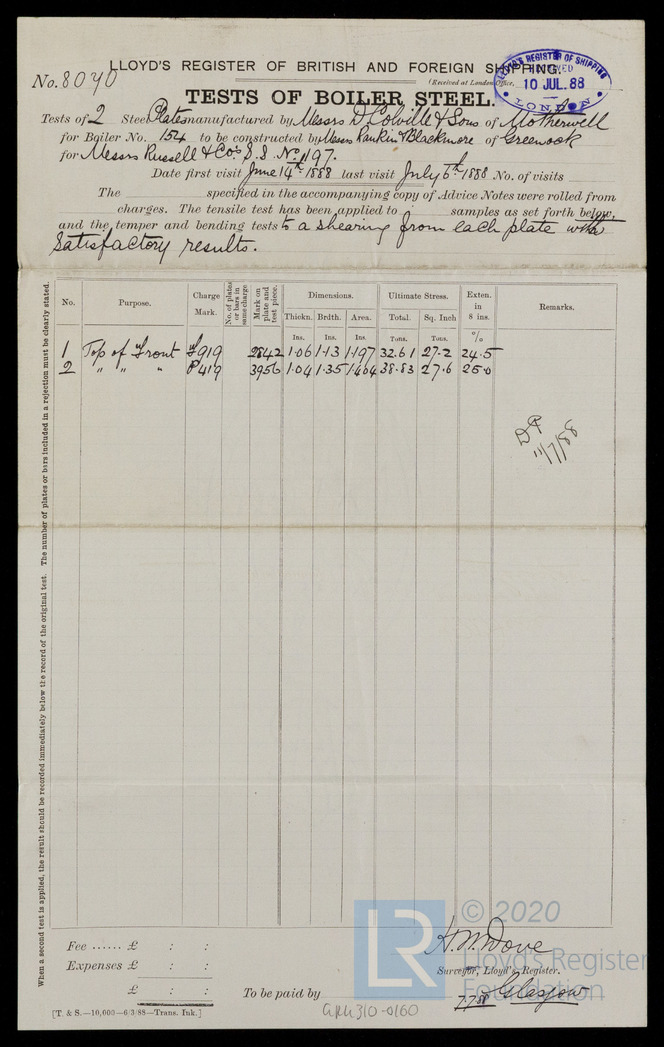 LLOYD'S REGISTER OF BRITISH AND FOREIGN SHIPPING.
No. 8040
(Received at London Office,
LLOYD'S REGISTER OF SHIPPING
RECEIVED
10 JUL. 88
LONDON
TESTS OF BOILER STEEL.
Tests of 2 Steel Plates manufactured by Messrs D. Colville & Sons of Motherwell
for Boiler No. 154 to be constructed by Messrs Rankin & Blackmore of Greenock
for Messrs Russell & Co's S.S. No. 197.
Date first visit June 14th 1888 last visit July 6th 1888 No. of visits
The specified in the accompanying copy of Advice Notes were rolled from
charges. The tensile test has been applied to samples as set forth below,
and the temper and bending tests to a shearing from each plate with
satisfactory results.
When a second test is applied, the result should be recorded immediately below the record of the original test. The number of plates or bars included in a rejection must be clearly stated.
No. Purpose. Charge Mark. No. of plates or bars in same charge Mark on plate and test piece. Dimensions. Ultimate Stress. Exten. in 8 ins. Remarks.
Thickn. Brdth. Area. Total. Sq. Inch
Ins. Ins. Ins. Tons. Tons. %
1 Top of Front 919 2842 1.06 1.13 1.197 32.61 27.2 24.5
2 " " " P419 3956 1.04 1.35 1.404 38.83 27.6 25.0
11/7/88
Fee ...... £ : :
Expenses £ : :
£ : :
To be paid by
H. W. Dove
Surveyor, Lloyd's Register.
7.7.88 Glasgow
[T. & S.—10,000—6/3/88—Trans. Ink.]
GRK310-0160
LR
© 2020
Lloyd's Register
Foundation